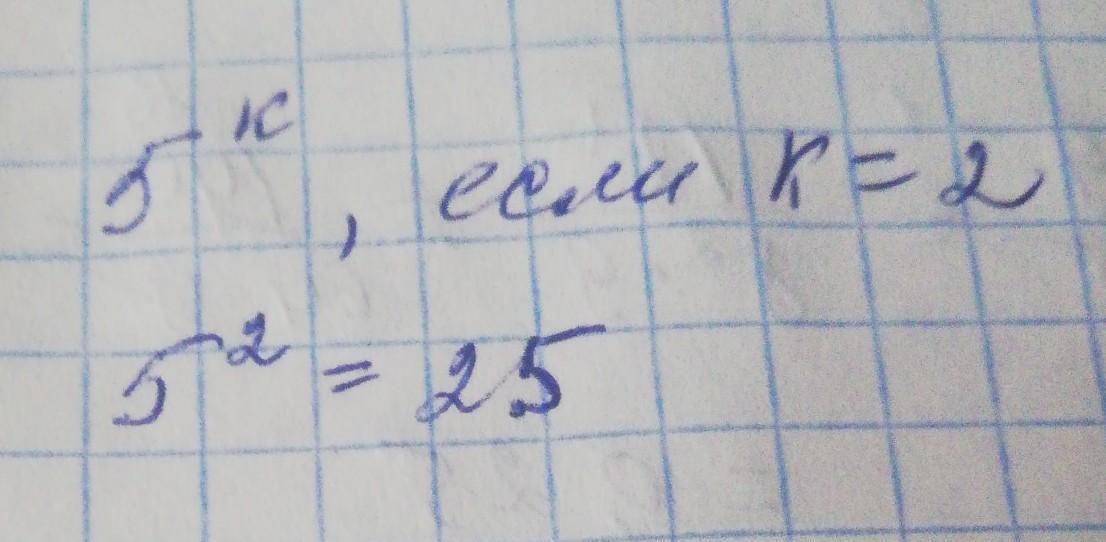 5^к, если к = 2
5^2 = 25